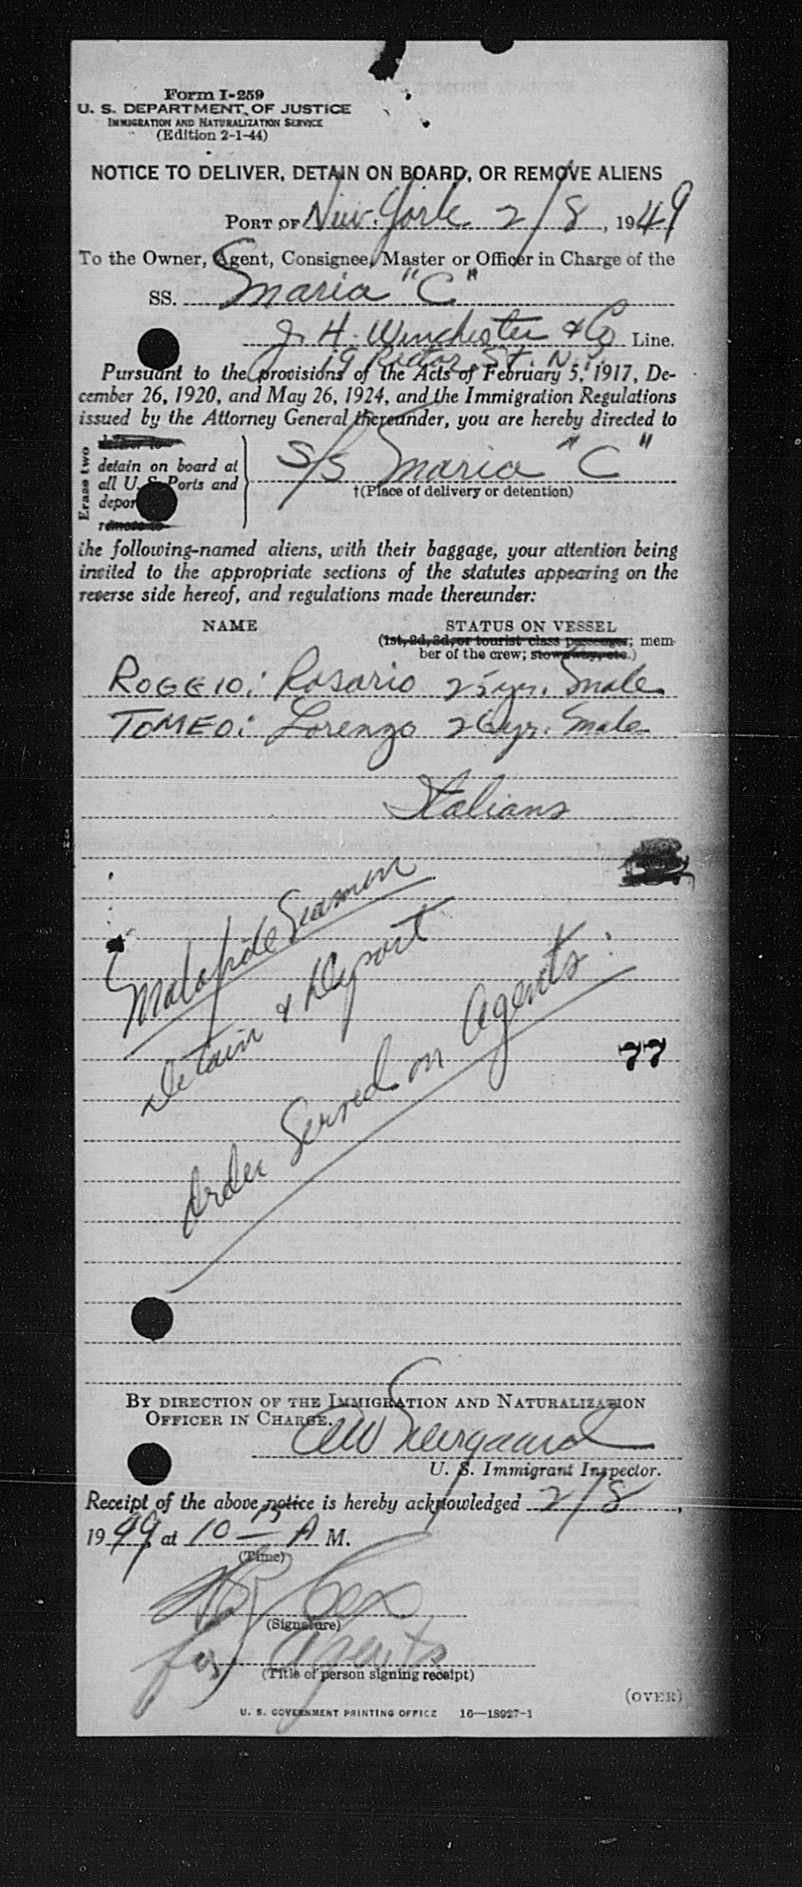 Form I-259
U. S. DEPARTMENT OF JUSTICE
IMMIGRATION AND NATURALIZATION SERVICE
(Edition 2-1-44)
NOTICE TO DELIVER, DETAIN ON BOARD, OR REMOVE ALIENS
PORT OF New York 2/8, 1949
To the Owner, Agent, Consignee, Master or Officer in Charge of the
SS. Maria "C"
J. H. Winchester & Co Line.
19 Rector St. N.Y.
Pursuant to the provisions of the Acts of February 5, 1917, De-
cember 26, 1920, and May 26, 1924, and the Immigration Regulations
issued by the Attorney General thereunder, you are hereby directed to
Erase two
detain on board at
all U. S. Ports and
depor
remove to
S/S Maria "C"
†(Place of delivery or detention)
the following-named aliens, with their baggage, your attention being
invited to the appropriate sections of the statutes appearing on the
reverse side hereof, and regulations made thereunder:
NAME STATUS ON VESSEL
(1st, 2d, 3d, or tourist class passenger; mem-
ber of the crew; stowaway, etc.)
ROGGIO: Rosario 25yr. Male
TOMEO: Lorenzo 26yr. Male
Italians
Malafide Seamen
Detain & Deport
Order Served on Agents.
77
BY DIRECTION OF THE IMMIGRATION AND NATURALIZATION
OFFICER IN CHARGE.
U. S. Immigrant Inspector.
Receipt of the above notice is hereby acknowledged 2/8,
1949 at 10 A M.
(Time)
Cox
(Signature)
for Agents
(Title of person signing receipt)
(OVER)
U. S. GOVERNMENT PRINTING OFFICE 16—18927-1